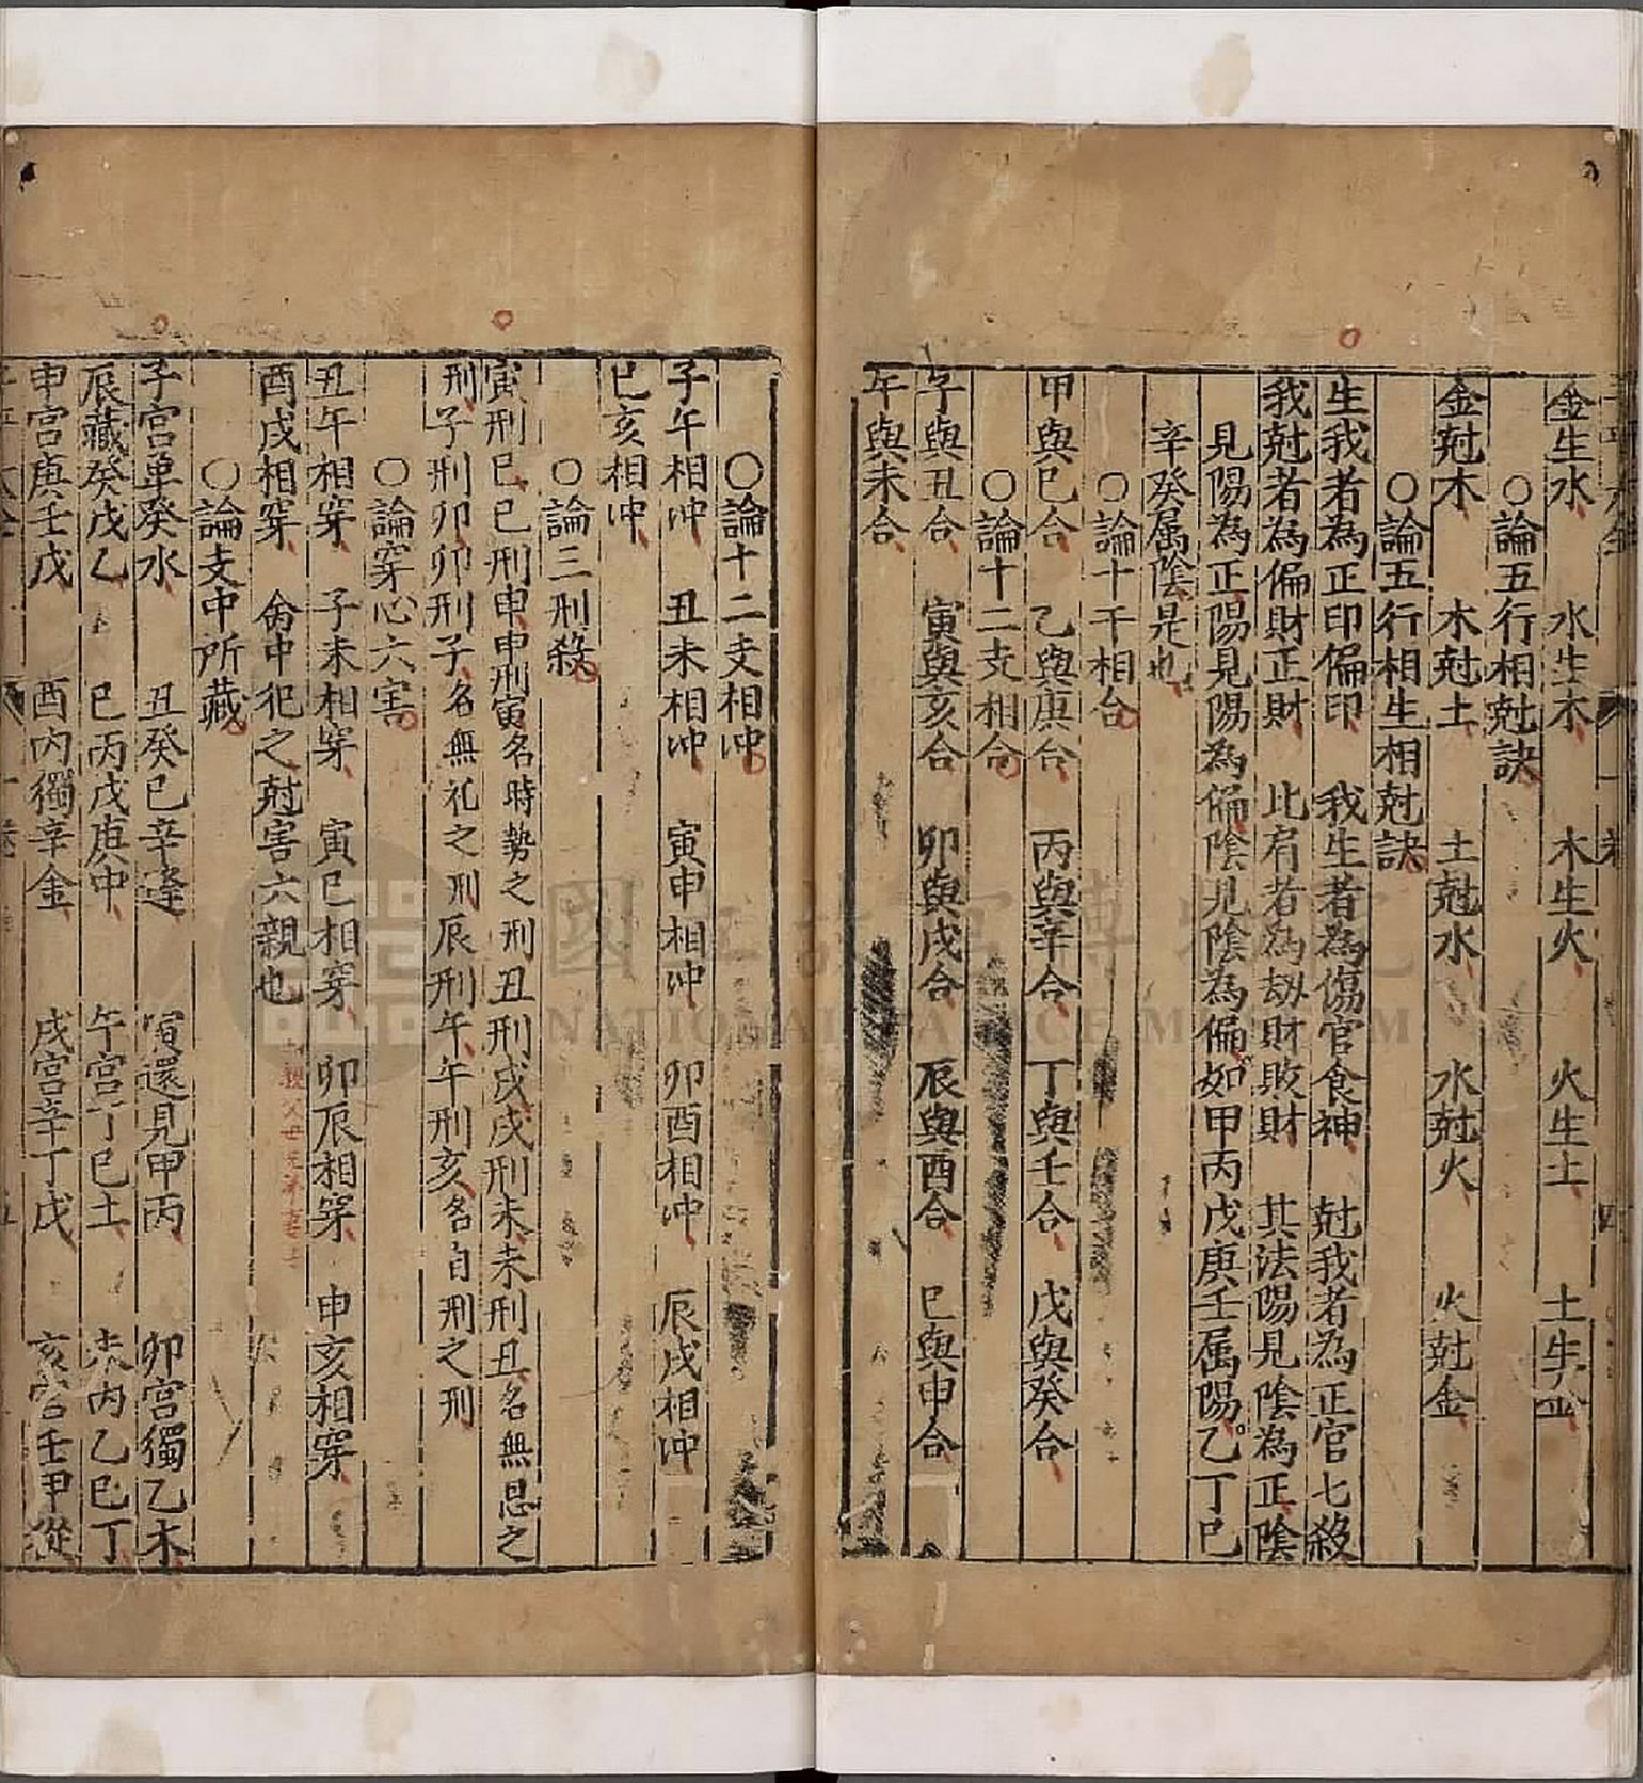 金生水 水生木 木生火 火生土 土生金
○論五行相尅訣
金尅木 木尅土 土尅水 水尅火 火尅金
○論五行相生相尅訣
生我者為正印偏印 我生者為傷官食神 尅我者為正官七殺
我尅者為偏財正財 比肩者為劫財敗財 其法陽見陰為正陰
見陽為正陽見陽為偏陰見陰為偏如甲丙戊庚壬属陽乙丁巳
辛癸属陰是也
○論十干相合
甲與巳合 乙與庚合 丙與辛合 丁與壬合 戊與癸合
○論十二支相合
子與丑合 寅與亥合 卯與戌合 辰與酉合 巳與申合
午與未合
○論十二支相冲
子午相冲 丑未相冲 寅申相冲 卯酉相冲 辰戌相冲
巳亥相冲
○論三刑殺
寅刑巳巳刑申申刑寅名時勢之刑丑刑戌戌刑未未刑丑名無恩之
刑子刑卯卯刑子名無礼之刑辰刑午午刑亥名自刑之刑
○論穿心六害
丑午相穿 子未相穿 寅巳相穿 卯辰相穿 申亥相穿
酉戌相穿 命中犯之尅害六親也
○論支中所藏
子宮单癸水 丑癸巳辛逢 寅還見甲丙 卯宮獨乙木
辰藏癸戊乙 巳丙戊庚中 午宮丁巳土 未丙乙巳丁
申宮庚壬戊 酉丙獨辛金 戌宮辛丁戊 亥宮壬甲從
國立故宮博物院
NATIONAL PALACE MUSEUM